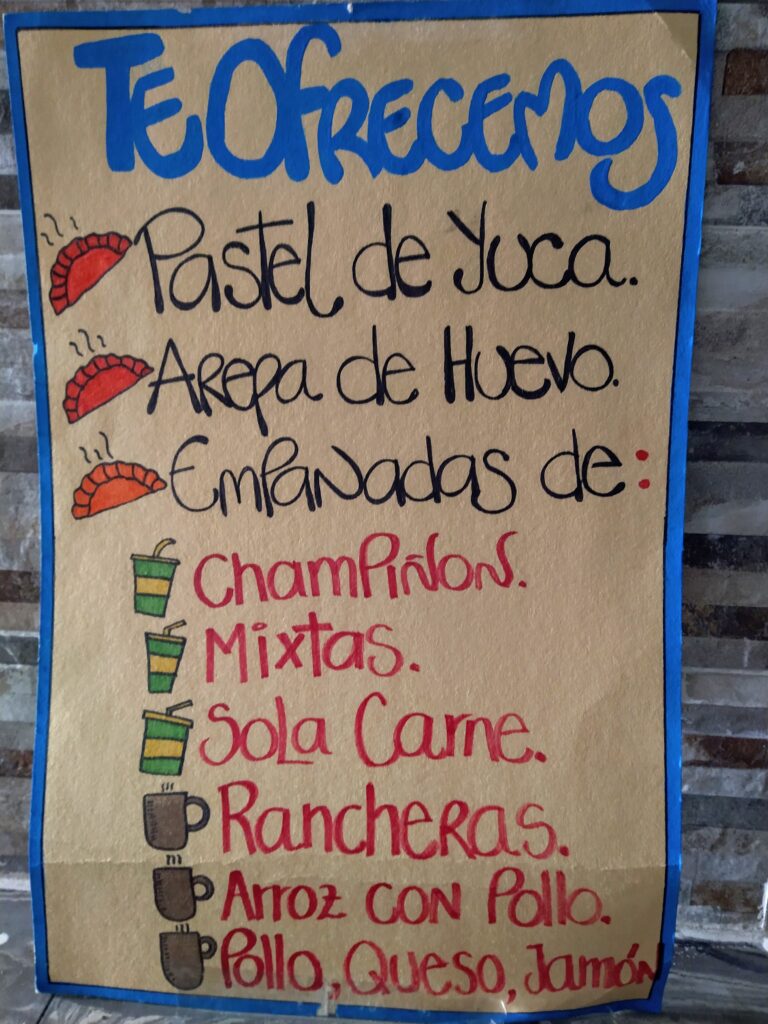 Te Ofrecemos
Pastel de Yuca.
Arepa de Huevo.
Empanadas de:
Champiñon.
Mixtas.
Sola Carne.
Rancheras.
Arroz con Pollo.
Pollo, Queso, Jamón